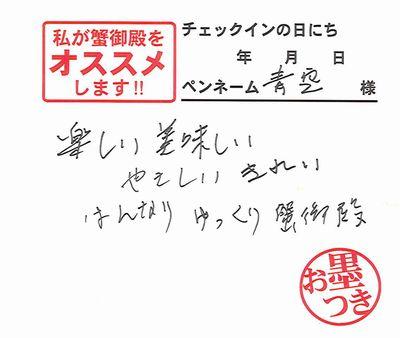 私が蟹御殿を
オススメ
します!!
チェックインの日にち
年 月 日
ペンネーム 青空 様
楽しい 美味しい
やさしい きれい
はんなり ゆっくり 蟹御殿
お墨
つき